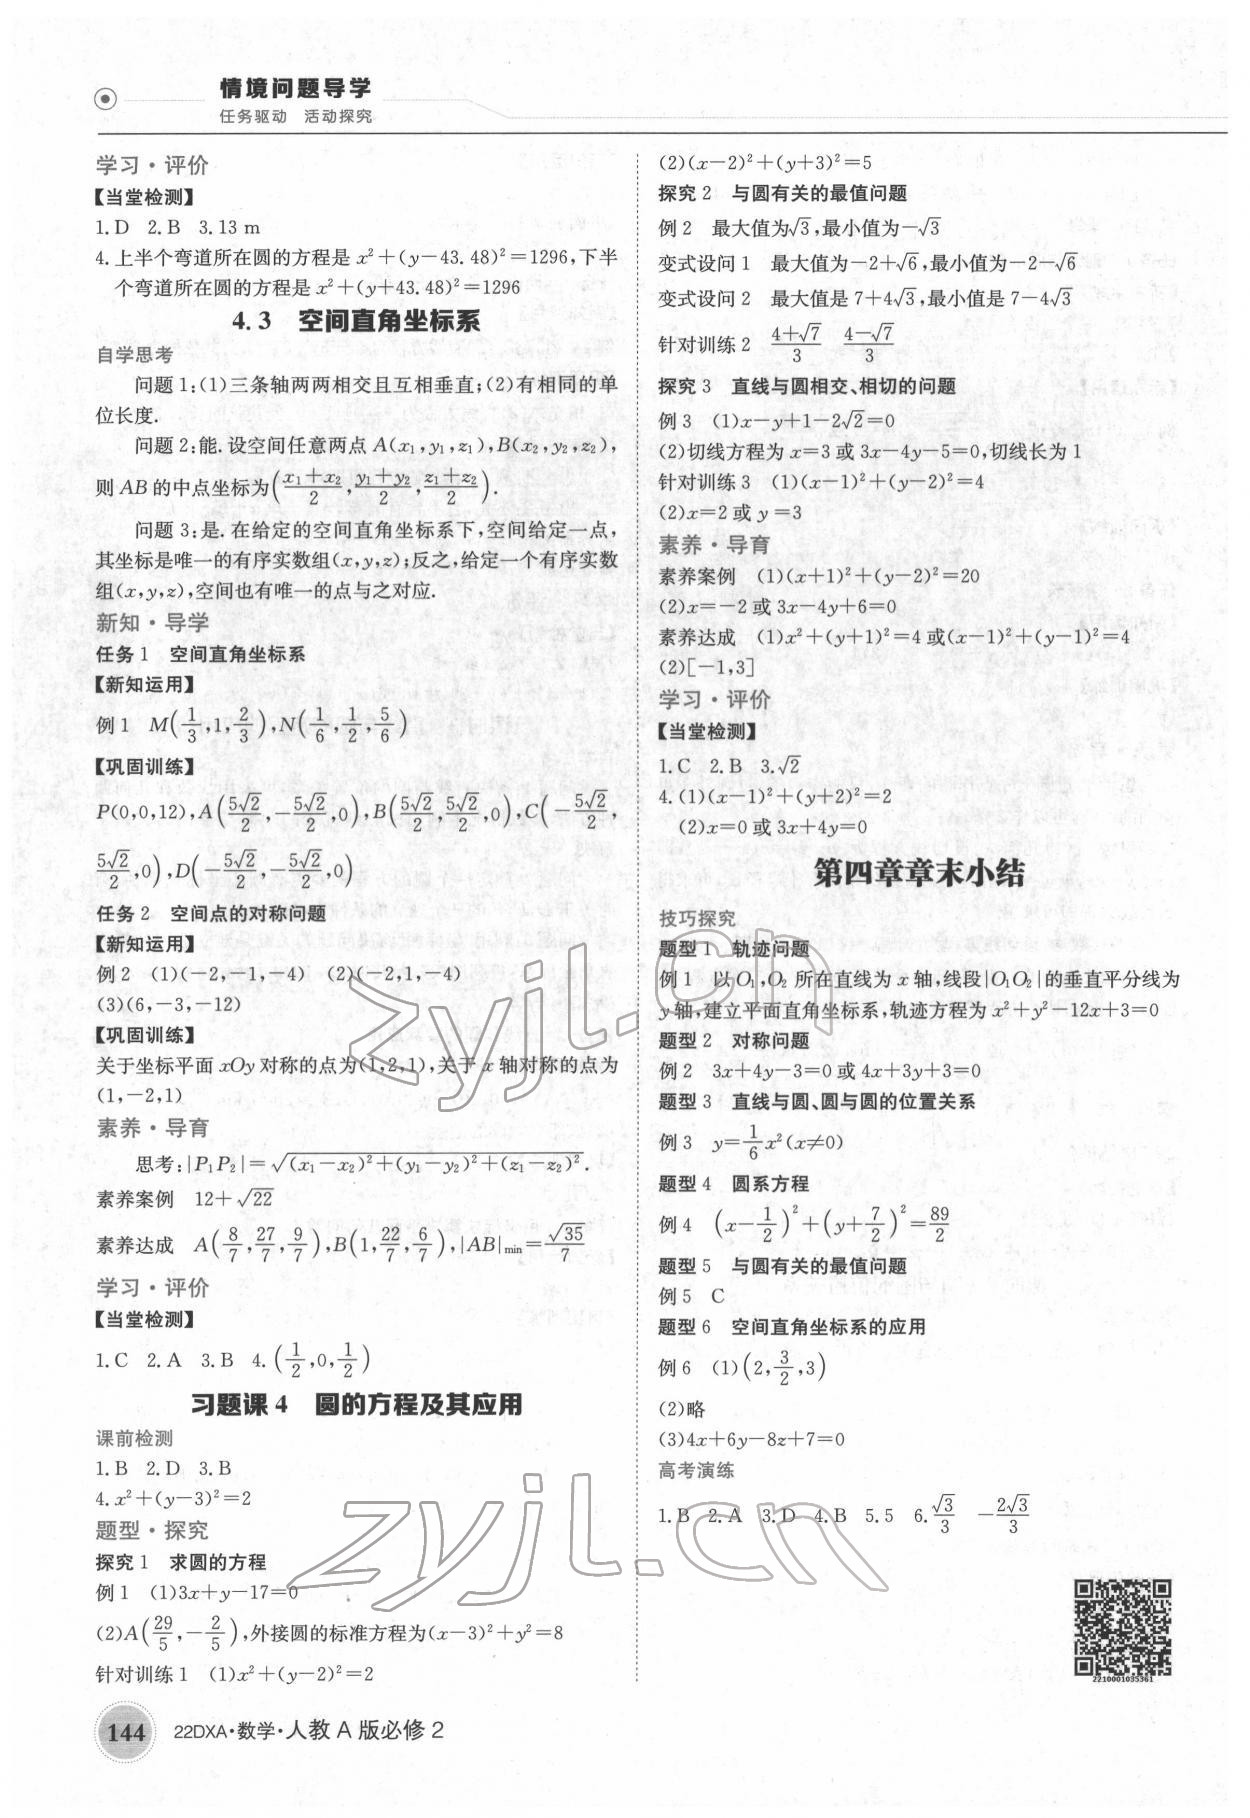 情境问题导学
任务驱动 活动探究
学习·评价
【当堂检测】
1.D 2.B 3.13 m
4.上半个弯道所在圆的方程是 x²+(y-43.48)²=1296,下半
个弯道所在圆的方程是 x²+(y+43.48)²=1296
4.3 空间直角坐标系
自学思考
问题1:(1)三条轴两两相交且互相垂直;(2)有相同的单
位长度.
问题2:能.设空间任意两点 A(x₁,y₁,z₁),B(x₂,y₂,z₂),
则 AB 的中点坐标为((x₁+x₂)/2,(y₁+y₂)/2,(z₁+z₂)/2).
问题3:是.在给定的空间直角坐标系下,空间给定一点,
其坐标是唯一的有序实数组(x,y,z);反之,给定一个有序实数
组(x,y,z),空间也有唯一的点与之对应.
新知·导学
任务1 空间直角坐标系
【新知运用】
例1 M(1/3,1,2/3),N(1/6,1/2,5/6)
【巩固训练】
P(0,0,12),A(5√2/2,-5√2/2,0),B(5√2/2,5√2/2,0),C(-5√2/2,
5√2/2,0),D(-5√2/2,-5√2/2,0)
任务2 空间点的对称问题
【新知运用】
例2 (1)(-2,-1,-4) (2)(-2,1,-4)
(3)(6,-3,-12)
【巩固训练】
关于坐标平面 xOy 对称的点为(1,2,1),关于 x 轴对称的点为
(1,-2,1)
素养·导育
思考:|P₁P₂|=√((x₁-x₂)²+(y₁-y₂)²+(z₁-z₂)²).
素养案例 12+√22
素养达成 A(8/7,27/7,9/7),B(1,22/7,6/7),|AB|min=√35/7
学习·评价
【当堂检测】
1.C 2.A 3.B 4.(1/2,0,1/2)
习题课4 圆的方程及其应用
课前检测
1.B 2.D 3.B
4.x²+(y-3)²=2
题型·探究
探究1 求圆的方程
例1 (1)3x+y-17=0
(2)A(29/5,-2/5),外接圆的标准方程为(x-3)²+y²=8
针对训练1 (1)x²+(y-2)²=2
(2)(x-2)²+(y+3)²=5
探究2 与圆有关的最值问题
例2 最大值为√3,最小值为-√3
变式设问1 最大值为-2+√6,最小值为-2-√6
变式设问2 最大值是7+4√3,最小值是7-4√3
针对训练2 (4+√7)/3 (4-√7)/3
探究3 直线与圆相交、相切的问题
例3 (1)x-y+1-2√2=0
(2)切线方程为 x=3 或 3x-4y-5=0,切线长为1
针对训练3 (1)(x-1)²+(y-2)²=4
(2)x=2 或 y=3
素养·导育
素养案例 (1)(x+1)²+(y-2)²=20
(2)x=-2 或 3x-4y+6=0
素养达成 (1)x²+(y+1)²=4 或(x-1)²+(y-1)²=4
(2)[-1,3]
学习·评价
【当堂检测】
1.C 2.B 3.√2
4.(1)(x-1)²+(y+2)²=2
(2)x=0 或 3x+4y=0
第四章章末小结
技巧探究
题型1 轨迹问题
例1 以 O₁,O₂ 所在直线为 x 轴,线段|O₁O₂|的垂直平分线为
y 轴,建立平面直角坐标系,轨迹方程为 x²+y²-12x+3=0
题型2 对称问题
例2 3x+4y-3=0 或 4x+3y+3=0
题型3 直线与圆、圆与圆的位置关系
例3 y=1/6x²(x≠0)
题型4 圆系方程
例4 (x-1/2)²+(y+7/2)²=89/2
题型5 与圆有关的最值问题
例5 C
题型6 空间直角坐标系的应用
例6 (1)(2,3/2,3)
(2)略
(3)4x+6y-8z+7=0
高考演练
1.B 2.A 3.D 4.B 5.5 6.√3/3 -2√3/3
2210001035361
144 22DXA·数学·人教A版必修2
zyjl.cn
zyjl.cn